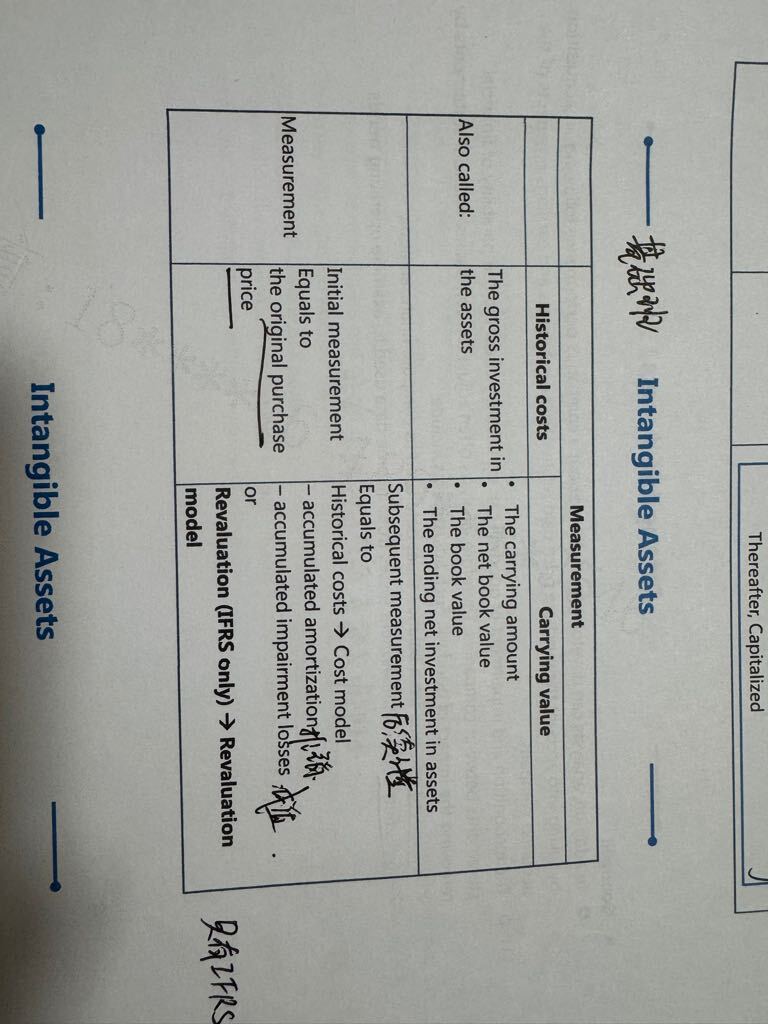 Thereafter, Capitalized
Intangible Assets
Measurement
Historical costs
Carrying value
Also called:
The gross investment in
the assets
• The carrying amount
• The net book value
• The book value
• The ending net investment in assets
Measurement
Initial measurement
Equals to
the original purchase
price
Subsequent measurement 后续计量
Equals to
Historical costs → Cost model
– accumulated amortization 摊销
– accumulated impairment losses 减值
or
Revaluation (IFRS only) → Revaluation
model
只有IFRS
Intangible Assets